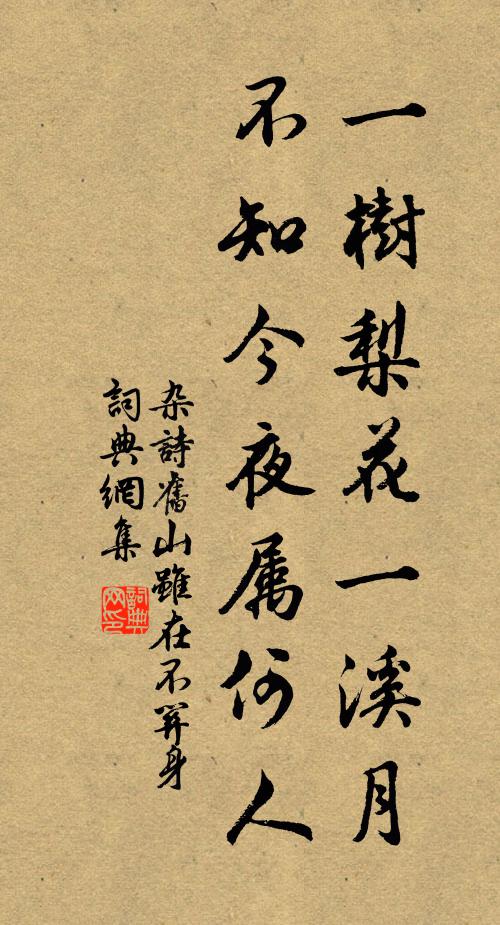 一樹梨花一溪月
不知今夜属何人
杂詩舊山雖在不關身
詞典網集
詞典
网印